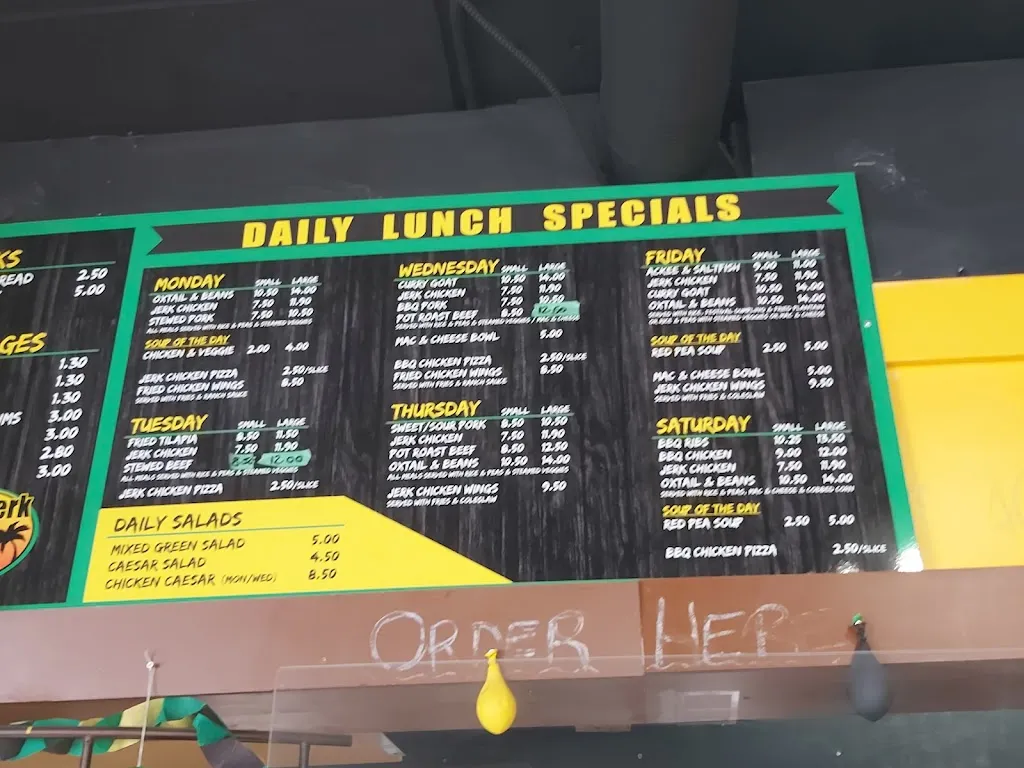 KS
READ 2.50
5.00
GES
1.30
1.30
1.30
MS 3.00
3.00
2.80
3.00
erk
DAILY LUNCH SPECIALS
MONDAY SMALL LARGE
OXTAIL & BEANS 10.50 14.00
JERK CHICKEN 7.50 11.90
STEWED PORK 7.50 10.50
ALL MEALS SERVED WITH RICE & PEAS & STEAMED VEGGIES
SOUP OF THE DAY
CHICKEN & VEGGIE 2.00 4.00
JERK CHICKEN PIZZA 2.50/SLICE
FRIED CHICKEN WINGS 8.50
SERVED WITH FRIES & RANCH SAUCE
TUESDAY SMALL LARGE
FRIED TILAPIA 8.50 11.50
JERK CHICKEN 7.50 11.90
STEWED BEEF 12.00
ALL MEALS SERVED WITH RICE & PEAS & STEAMED VEGGIES
JERK CHICKEN PIZZA 2.50/SLICE
DAILY SALADS
MIXED GREEN SALAD 5.00
CAESAR SALAD 4.50
CHICKEN CAESAR (MON/WED) 8.50
WEDNESDAY SMALL LARGE
CURRY GOAT 10.50 14.00
JERK CHICKEN 7.50 11.90
BBQ PORK 7.50 10.50
POT ROAST BEEF 8.50 12.00
SERVED WITH RICE & PEAS & STEAMED VEGGIES / MAC & CHEESE
MAC & CHEESE BOWL 5.00
BBQ CHICKEN PIZZA 2.50/SLICE
FRIED CHICKEN WINGS 8.50
SERVED WITH FRIES & RANCH SAUCE
THURSDAY SMALL LARGE
SWEET/SOUR PORK 8.50 10.50
JERK CHICKEN 7.50 11.90
POT ROAST BEEF 8.50 12.50
OXTAIL & BEANS 10.50 14.00
ALL MEALS SERVED WITH RICE & PEAS & STEAMED VEGGIES
JERK CHICKEN WINGS 9.50
SERVED WITH FRIES & COLESLAW
FRIDAY SMALL LARGE
ACKEE & SALTFISH 9.00 11.60
JERK CHICKEN 7.50 11.90
CURRY GOAT 10.50 14.00
OXTAIL & BEANS 10.50 14.00
SERVED WITH RICE, FESTIVAL
SOUP OF THE DAY
RED PEA SOUP 2.50 5.00
MAC & CHEESE BOWL 5.00
JERK CHICKEN WINGS 9.50
SERVED WITH FRIES & COLESLAW
SATURDAY SMALL LARGE
BBQ RIBS 10.25 13.50
BBQ CHICKEN 9.00 12.00
JERK CHICKEN 7.50 11.90
OXTAIL & BEANS 10.50 14.00
SERVED WITH RICE & PEAS, MAC & CHEESE & COBBED CORN
SOUP OF THE DAY
RED PEA SOUP 2.50 5.00
BBQ CHICKEN PIZZA 2.50/SLICE
ORDER HER